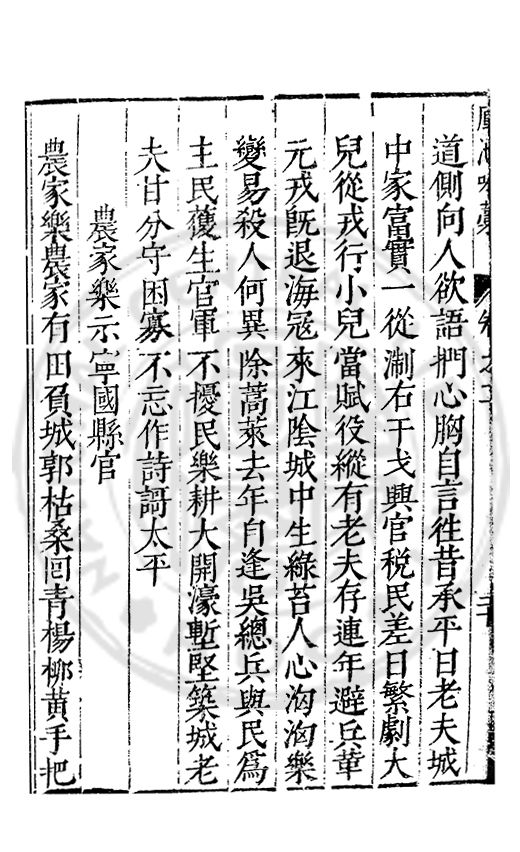 道側向人欲語捫心胸自言徃昔承平日老夫城
中家富實一從淛右干戈興官稅民差日繁劇大
兒從戎行小兒當賦役縱有老夫存連年避兵革
元戎旣退海冦來江陰城中生綠苔人心洶洶樂
變易殺人何異除蒿萊去年自逢吳總兵與民爲
主民獲生官軍不擾民樂耕大開濠塹堅築城老
夫甘分守困寡不忘作詩謌太平
農家樂示寧國縣官
農家樂農家有田負城郭枯桑囘青楊柳黃手把